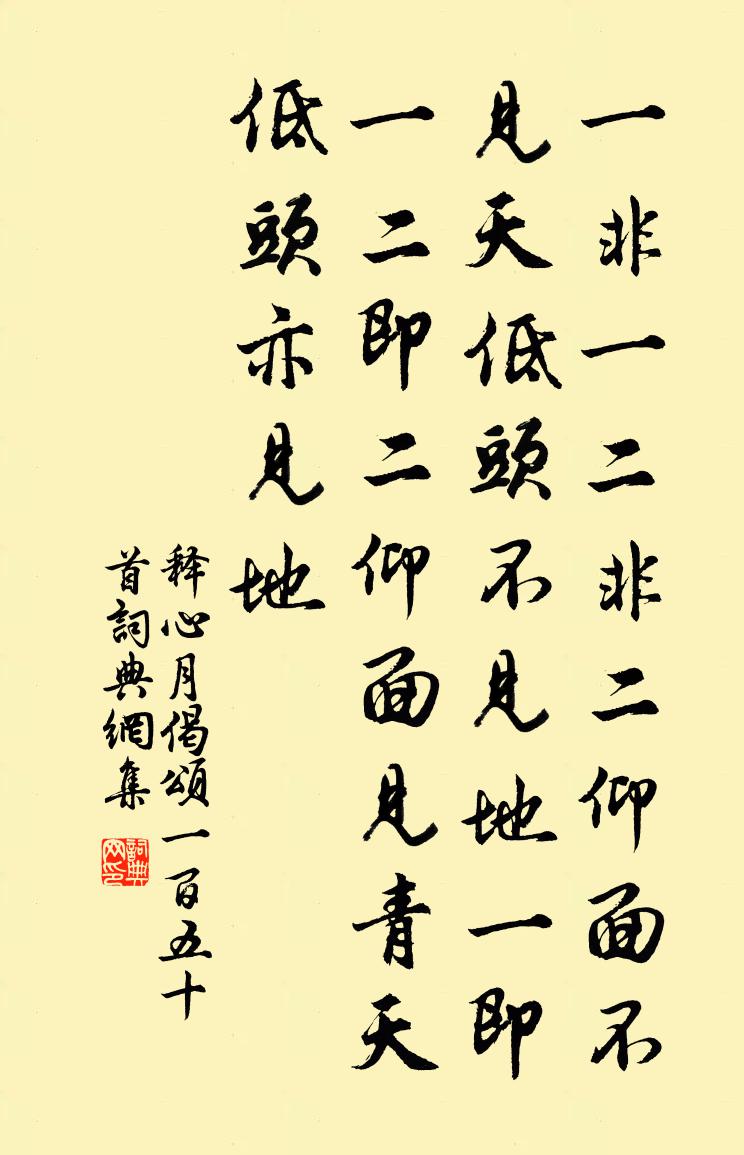 一非一二非二仰面不
見天低頭不見地一即
一二即二仰面見青天
低頭亦見地
释心月偈頌一百五十
首詞典網集
詞典网印